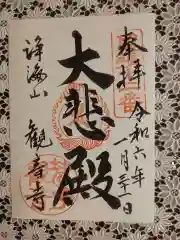 奉拝
令和六年
一月三十日
大悲殿
海山
観音寺